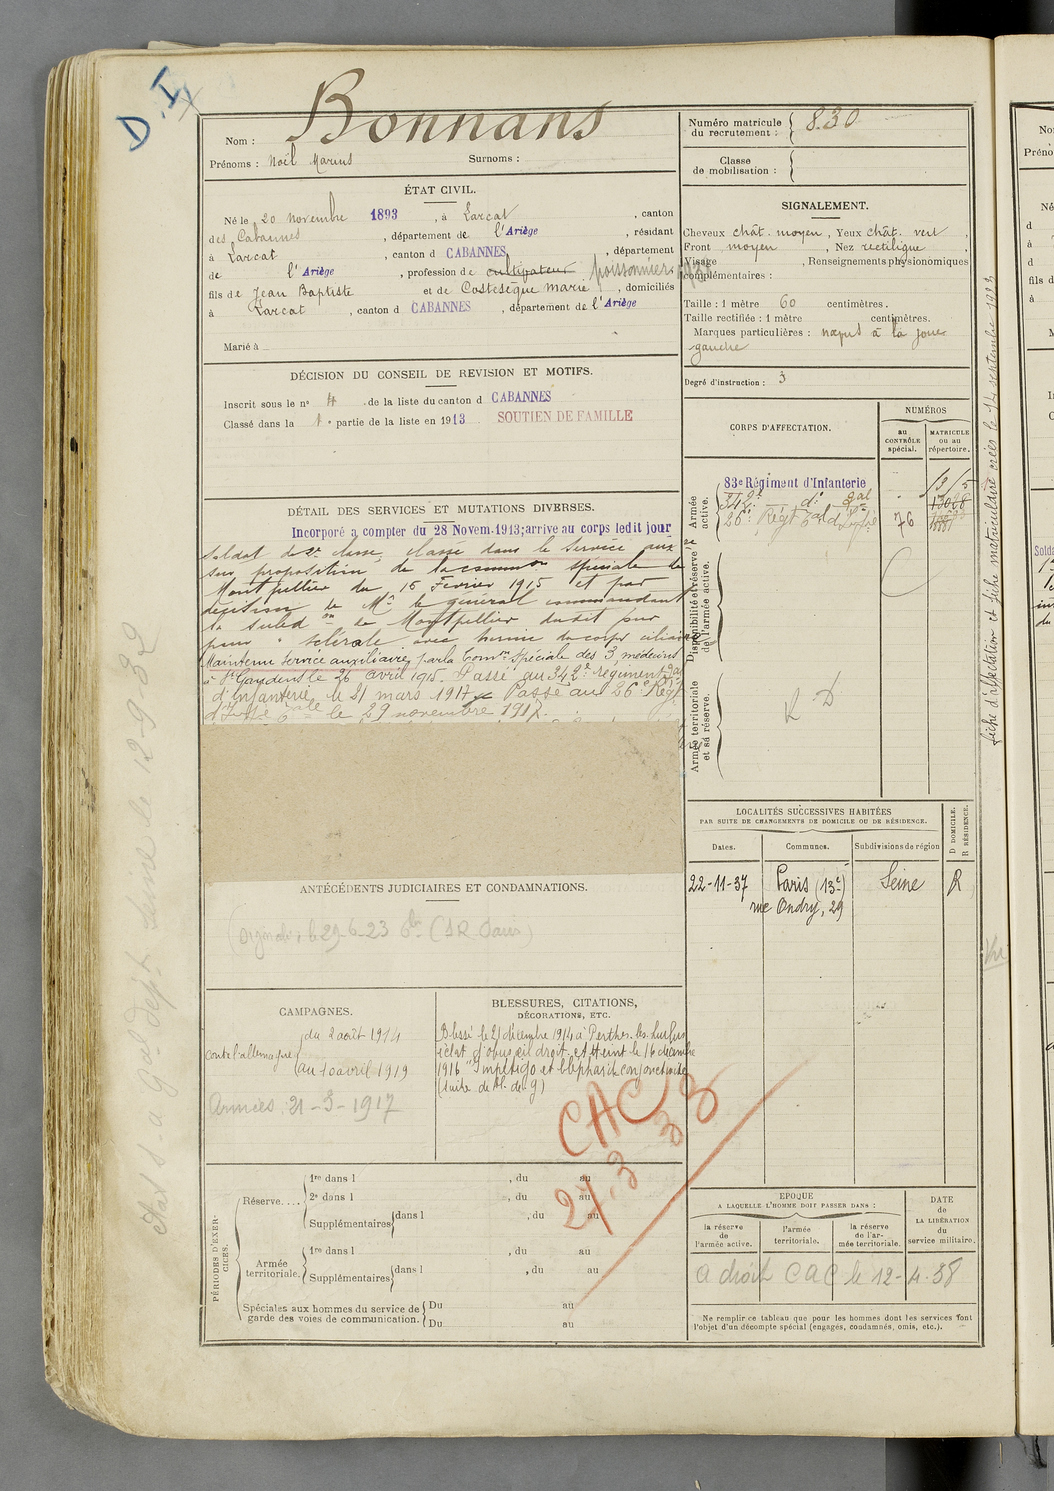 D.I
Bonnans
Nom :
Prénoms : Noël Marius Surnoms :
ÉTAT CIVIL.
Né le 20 novembre 1893, à Larcat, canton
des Cabannes, département de l'Ariège, résidant
à Larcat, canton d CABANNES, département
de l'Ariège, profession de cultivateur poissonnier
fils de Jean Baptiste et de Costesèque Marie, domiciliés
à Larcat, canton d CABANNES, département de l'Ariège
Marié à
DÉCISION DU CONSEIL DE REVISION ET MOTIFS.
Inscrit sous le nº 4 de la liste du canton d CABANNES
Classé dans la 1e partie de la liste en 1913 SOUTIEN DE FAMILLE
DÉTAIL DES SERVICES ET MUTATIONS DIVERSES.
Incorporé a compter du 28 Novem. 1913; arrive au corps ledit jour
soldat de 2e classe, classé dans le service auxre
sur proposition de la commission spéciale de
Montpellier du 15 Février 1915 et par
décision de Mr le général commandant
la subdon de Montpellier dudit jour
pour sclérale avec hernie du corps ciliaire
Maintenu Service auxiliaire, par la Comon Spéciale des 3 médecins
à St Gaudens le 26 avril 1915. Passé au 342e régiment
d'Infanterie le 21 mars 1917. Passé au 26e Régt
le 29 novembre 1917.
ANTÉCÉDENTS JUDICIAIRES ET CONDAMNATIONS.
le 29-6-23
CAMPAGNES.
contre l'allemagne du 2 août 1914
au 10 avril 1919
Armées 21-3-1917
BLESSURES, CITATIONS,
DÉCORATIONS, ETC.
Blessé le 21 décembre 1914 à Perthes les hurlus
éclat d'obus œil droit. Atteint le 16 décembre
1916 "Impétigo et blépharite conjonctivite
(suite de bl. de g)
CAC
27.3
PÉRIODES D'EXERCICES.
Réserve....
1re dans l , du au
2e dans l , du au
Supplémentaires dans l , du au
Armée territoriale.
1re dans l , du au
Supplémentaires dans l , du au
Spéciales aux hommes du service de Du au
garde des voies de communication. Du au
Numéro matricule
du recrutement : 830
Classe
de mobilisation :
SIGNALEMENT.
Cheveux chât. moyen, Yeux chât. vert,
Front moyen, Nez rectiligne,
Visage , Renseignements physionomiques
complémentaires :
Taille : 1 mètre 60 centimètres.
Taille rectifiée : 1 mètre centimètres.
Marques particulières : nœpus à la joue
gauche
Degré d'instruction : 3
CORPS D'AFFECTATION.
NUMÉROS
au
CONTRÔLE
spécial.
MATRICULE
ou au
répertoire.
Armée
active.
83e Régiment d'Infanterie
342e do
26e Régt
76
Disponibilité et réserve
de l'armée active.
Armée territoriale
et sa réserve.
R D
LOCALITÉS SUCCESSIVES HABITÉES
PAR SUITE DE CHANGEMENTS DE DOMICILE OU DE RÉSIDENCE.
Dates.
Communes.
Subdivisions de région
D DOMICILE.
R RÉSIDENCE.
22-11-37 Paris (13e) Seine R
rue Ondry, 29
EPOQUE
A LAQUELLE L'HOMME DOIT PASSER DANS :
la réserve
de
l'armée active.
l'armée
territoriale.
la réserve
de l'ar-
mée territoriale.
DATE
de
LA LIBÉRATION
du
service militaire.
a droit CAC le 12-4-38
Ne remplir ce tableau que pour les hommes dont les services font
l'objet d'un décompte spécial (engagés, condamnés, omis, etc.).
fiche d'affectation et fiche matriculaire créés le 14 septembre 1923
Vu
le 12-9-32